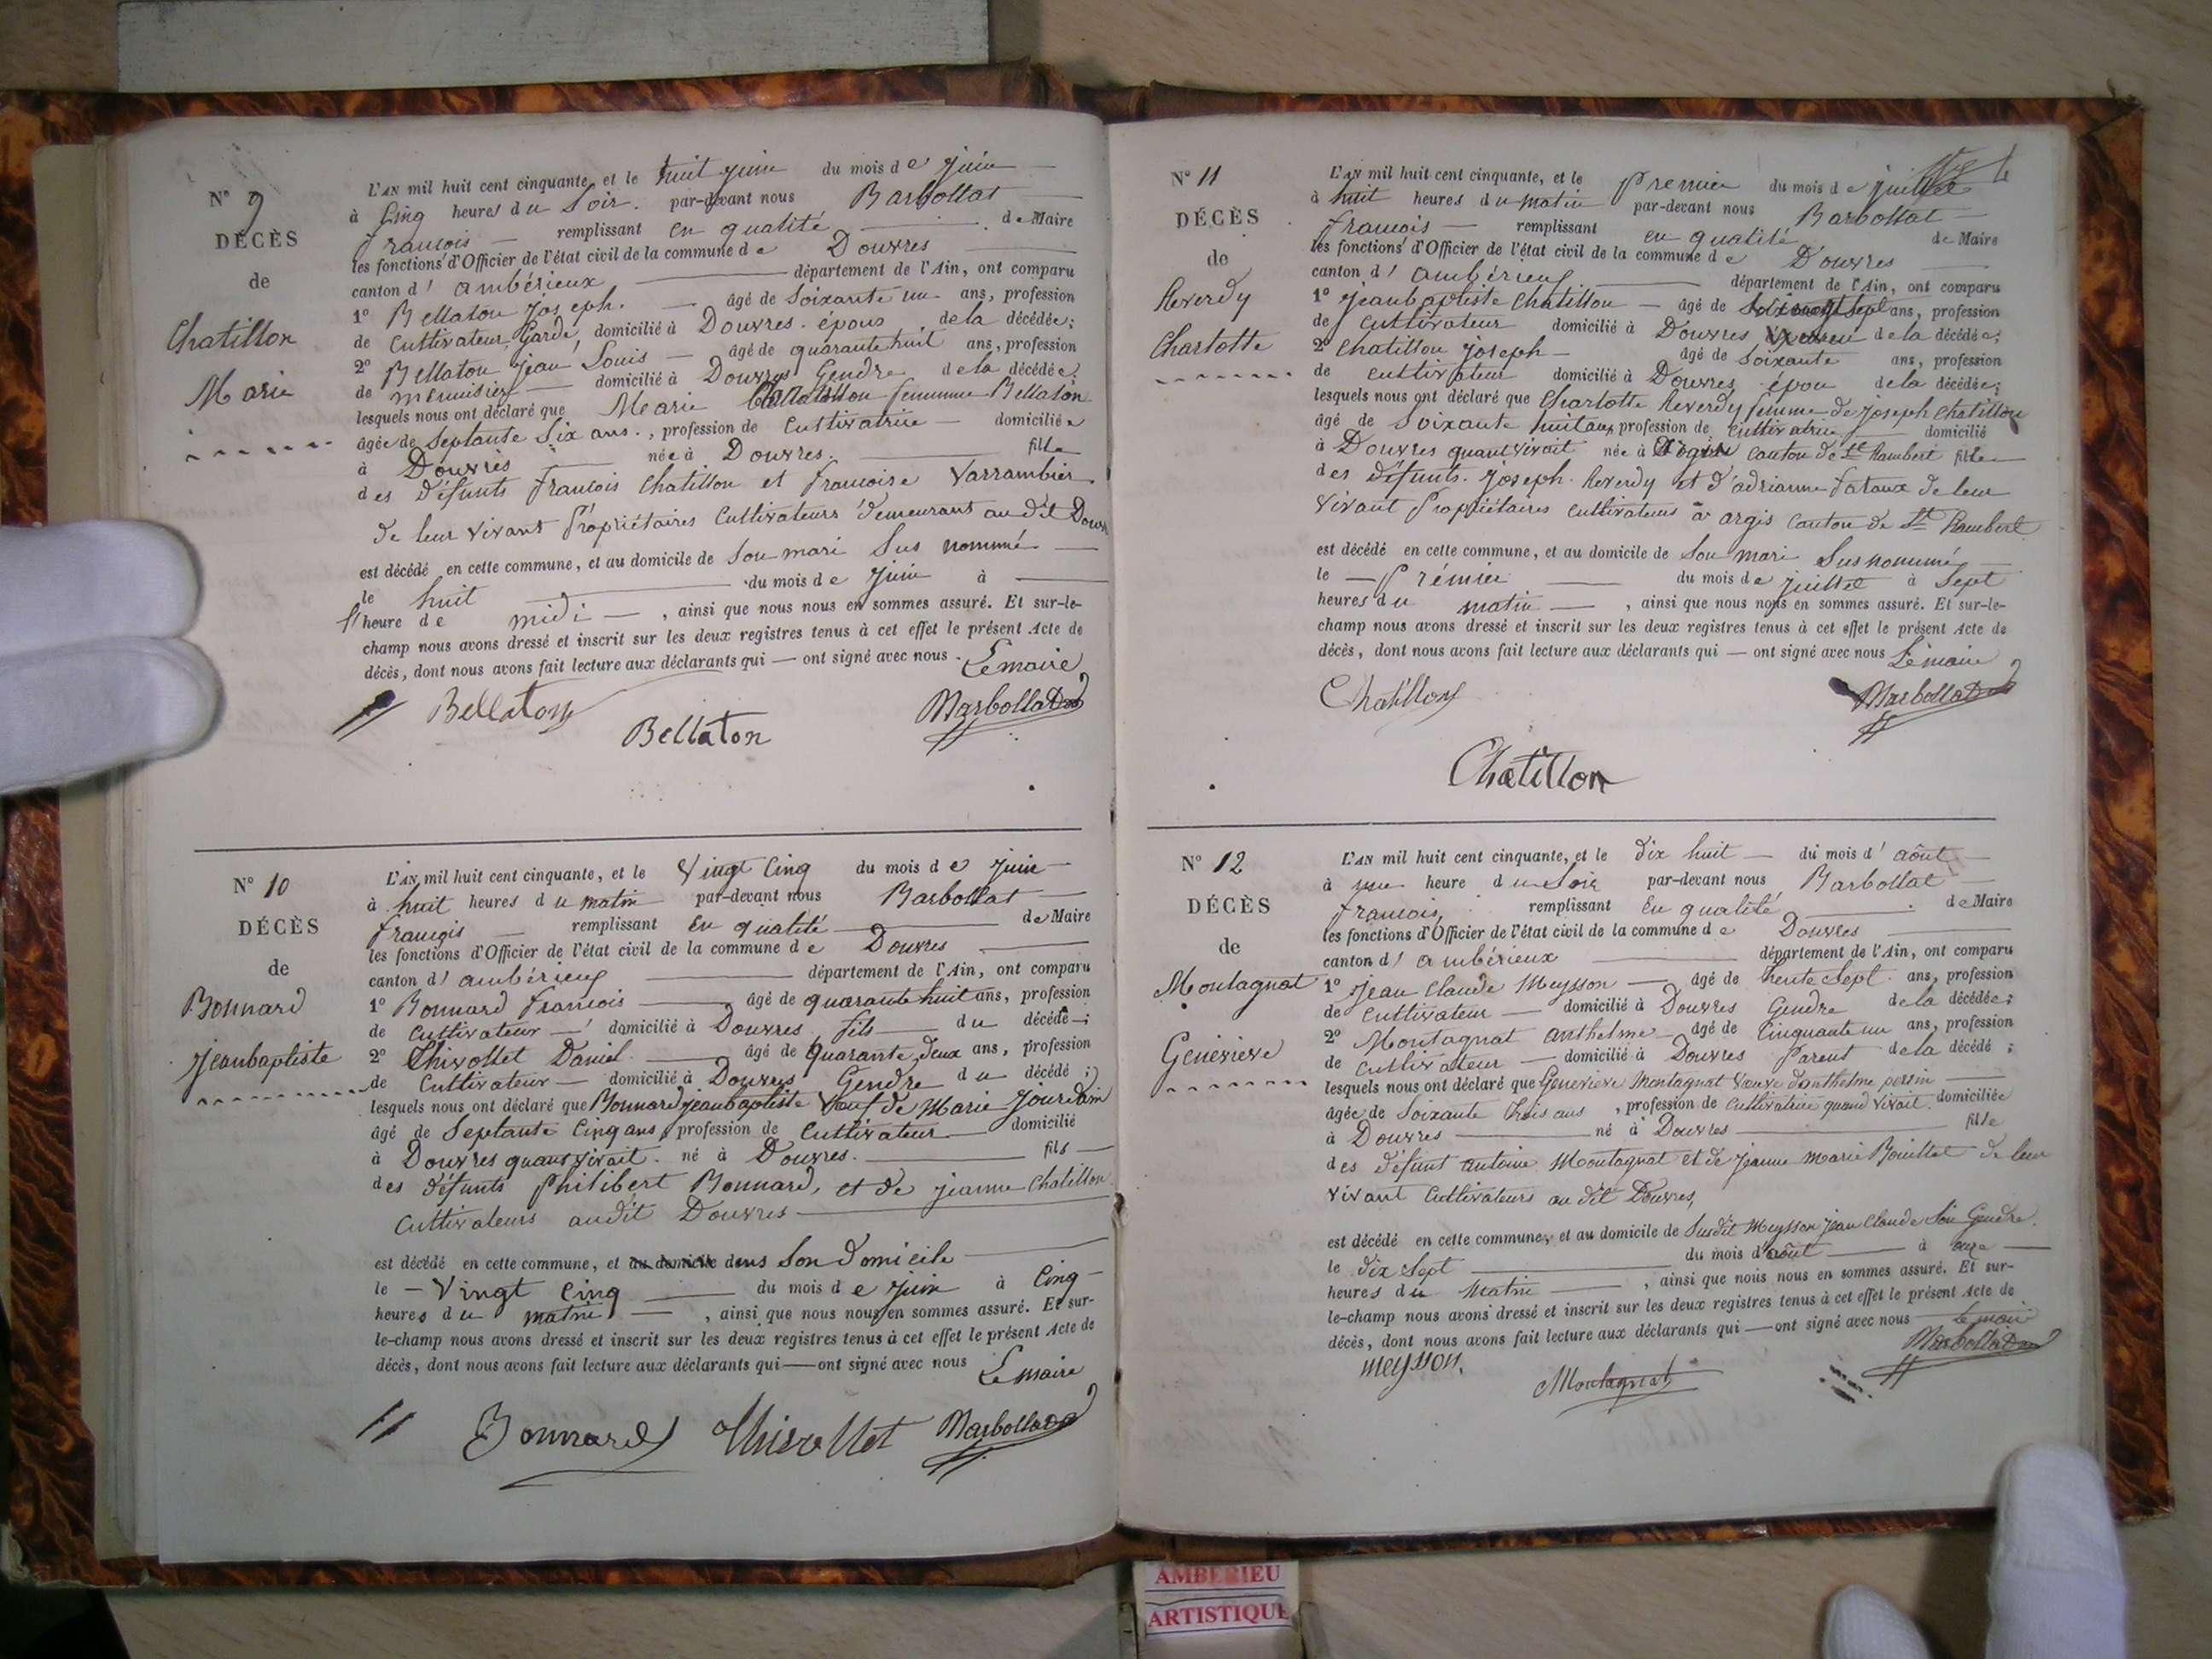 N° 9
DÉCÈS
de
Chatillon
Marie
L'AN mil huit cent cinquante, et le huit juin du mois de juin
à cinq heures du soir. par-devant nous Barbollat
francois remplissant en qualité de Maire
les fonctions d'Officier de l'état civil de la commune de Douvres
canton d' ambérieux département de l'Ain, ont comparu
1° Bellaton joseph. âgé de soixante un ans, profession
de cultivateur, Garde, domicilié à Douvres. époux de la décédée;
2° Bellaton jean Louis âgé de quarante huit ans, profession
de menuisier domicilié à Douvres Gendre de la décédée;
lesquels nous ont déclaré que Marie Chatillon femme Bellaton
âgée de septante six ans., profession de cultivatrice domiciliée
à Douvres née à Douvres. fille
des défunts francois Chatillon et francoise Varrambier
de leur vivant Propriétaires cultivateurs demeurant au dit Douvres
est décédé en cette commune, et au domicile de son mari sus nommé
le huit du mois de juin à
l'heure de midi, ainsi que nous nous en sommes assuré. Et sur-le-
champ nous avons dressé et inscrit sur les deux registres tenus à cet effet le présent Acte de
décès, dont nous avons fait lecture aux déclarants qui — ont signé avec nous. Le maire
Bellaton Barbollat
Bellaton
N° 10
DÉCÈS
de
Bonnard
jeanbaptiste
L'AN mil huit cent cinquante, et le vingt cinq du mois de juin
à huit heures du matin par-devant nous Barbollat
francois remplissant en qualité de Maire
les fonctions d'Officier de l'état civil de la commune de Douvres
canton d' ambérieux département de l'Ain, ont comparu
1° Bonnard francois âgé de quarante huit ans, profession
de cultivateur domicilié à Douvres fils du décédé;
2° Thivollet Daniel âgé de quarante deux ans, profession
de cultivateur domicilié à Douvres Gendre du décédé;
lesquels nous ont déclaré que Bonnard jeanbaptiste veuf de Marie jourdain
âgé de septante cinq ans, profession de cultivateur domicilié
à Douvres quant vivait. né à Douvres. fils
des défunts philibert Bonnard, et de jeanne chatillon
cultivateurs audit Douvres
est décédé en cette commune, et au domicile dans son domicile
le vingt cinq du mois de juin à cinq
heures du matin, ainsi que nous nous en sommes assuré. Et sur-
le-champ nous avons dressé et inscrit sur les deux registres tenus à cet effet le présent Acte de
décès, dont nous avons fait lecture aux déclarants qui — ont signé avec nous Le maire
Bonnard Thivollet Barbollat
N° 11
DÉCÈS
de
Reverdy
Charlotte
L'AN mil huit cent cinquante, et le premier du mois de juillet
à huit heures du matin par-devant nous Barbollat
francois remplissant en qualité de Maire
les fonctions d'Officier de l'état civil de la commune de Douvres
canton d' ambérieux département de l'Ain, ont comparu
1° jeanbaptiste chatillon âgé de sept ans, profession
de cultivateur domicilié à Douvres de la décédée;
2° chatillon joseph âgé de soixante ans, profession
de cultivateur domicilié à Douvres époux de la décédée;
lesquels nous ont déclaré que Charlotte Reverdy femme de joseph chatillon
âgé de soixante huit ans, profession de cultivatrice domicilié
à Douvres quant vivait née à Argis canton de St Rambert fille
des défunts. joseph. Reverdy et d'adrianne fataux de leur
vivant Propriétaires cultivateurs à argis canton de St Rambert
est décédé en cette commune, et au domicile de son mari susnommé
le prémier du mois de juillet à sept
heures du matin, ainsi que nous nous en sommes assuré. Et sur-le-
champ nous avons dressé et inscrit sur les deux registres tenus à cet effet le présent Acte de
décès, dont nous avons fait lecture aux déclarants qui — ont signé avec nous Le maire
Chatillon Barbollat
Chatillon
N° 12
DÉCÈS
de
Montagnat
Geneviève
L'AN mil huit cent cinquante, et le dix huit du mois d' août
à une heure du soir par-devant nous Barbollat
francois, remplissant en qualité de Maire
les fonctions d'Officier de l'état civil de la commune de Douvres
canton d' ambérieux département de l'Ain, ont comparu
1° jean claude Meysson âgé de trente sept ans, profession
de cultivateur domicilié à Douvres Gendre de la décédée;
2° Montagnat anthelme âgé de cinquante un ans, profession
de cultivateur domicilié à Douvres parent de la décédé;
lesquels nous ont déclaré que Geneviève Montagnat veuve d'anthelme persin
âgée de soixante trois ans, profession de cultivatrice quand vivait. domiciliée
à Douvres né à Douvres fille
des défunt antoine Montagnat et de jeanne marie Bouillet de leur
vivant cultivateurs au dit Douvres,
est décédé en cette commune, et au domicile de susdit Meysson jean claude son Gendre.
le dix sept du mois d'août à onze
heures du matin, ainsi que nous nous en sommes assuré. Et sur-
le-champ nous avons dressé et inscrit sur les deux registres tenus à cet effet le présent Acte de
décès, dont nous avons fait lecture aux déclarants qui — ont signé avec nous Le maire
meysson. Montagnat Barbollat
AMBERIEU
ARTISTIQUE